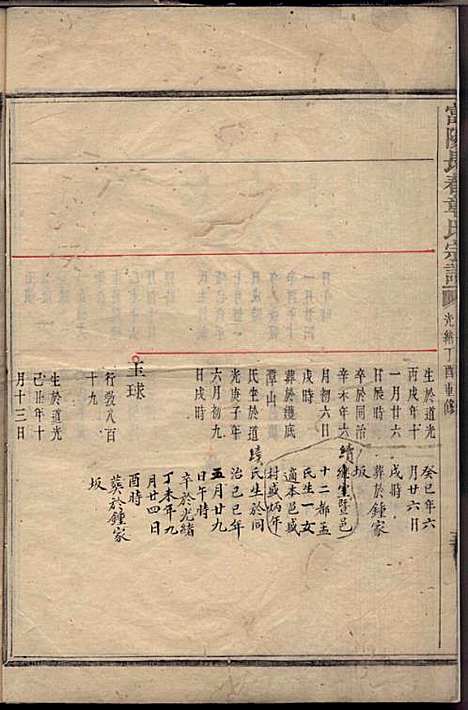 富陽長春章氏宗譜
光緒丁酉重修
生於道光
丙戌年十
一月廿六
日辰時
卒於同治
辛未年六
月初六日
戌時
葬於後底
潭山
氏生於道
光庚子年
六月初九
日戌時
玉球
行發八百
十九
生於道光
己丑年十
月十三日
癸巳年六
月廿六日
戌時
葬於鍾家
坂
續繼室暨邑
十二都孟
氏生一女
適本邑盛
村盛炳年
續氏生於同
治己巳年
五月廿九
日午時
卒於光緒
丁未年九
月廿四日
酉時
葵於鍾家
坂